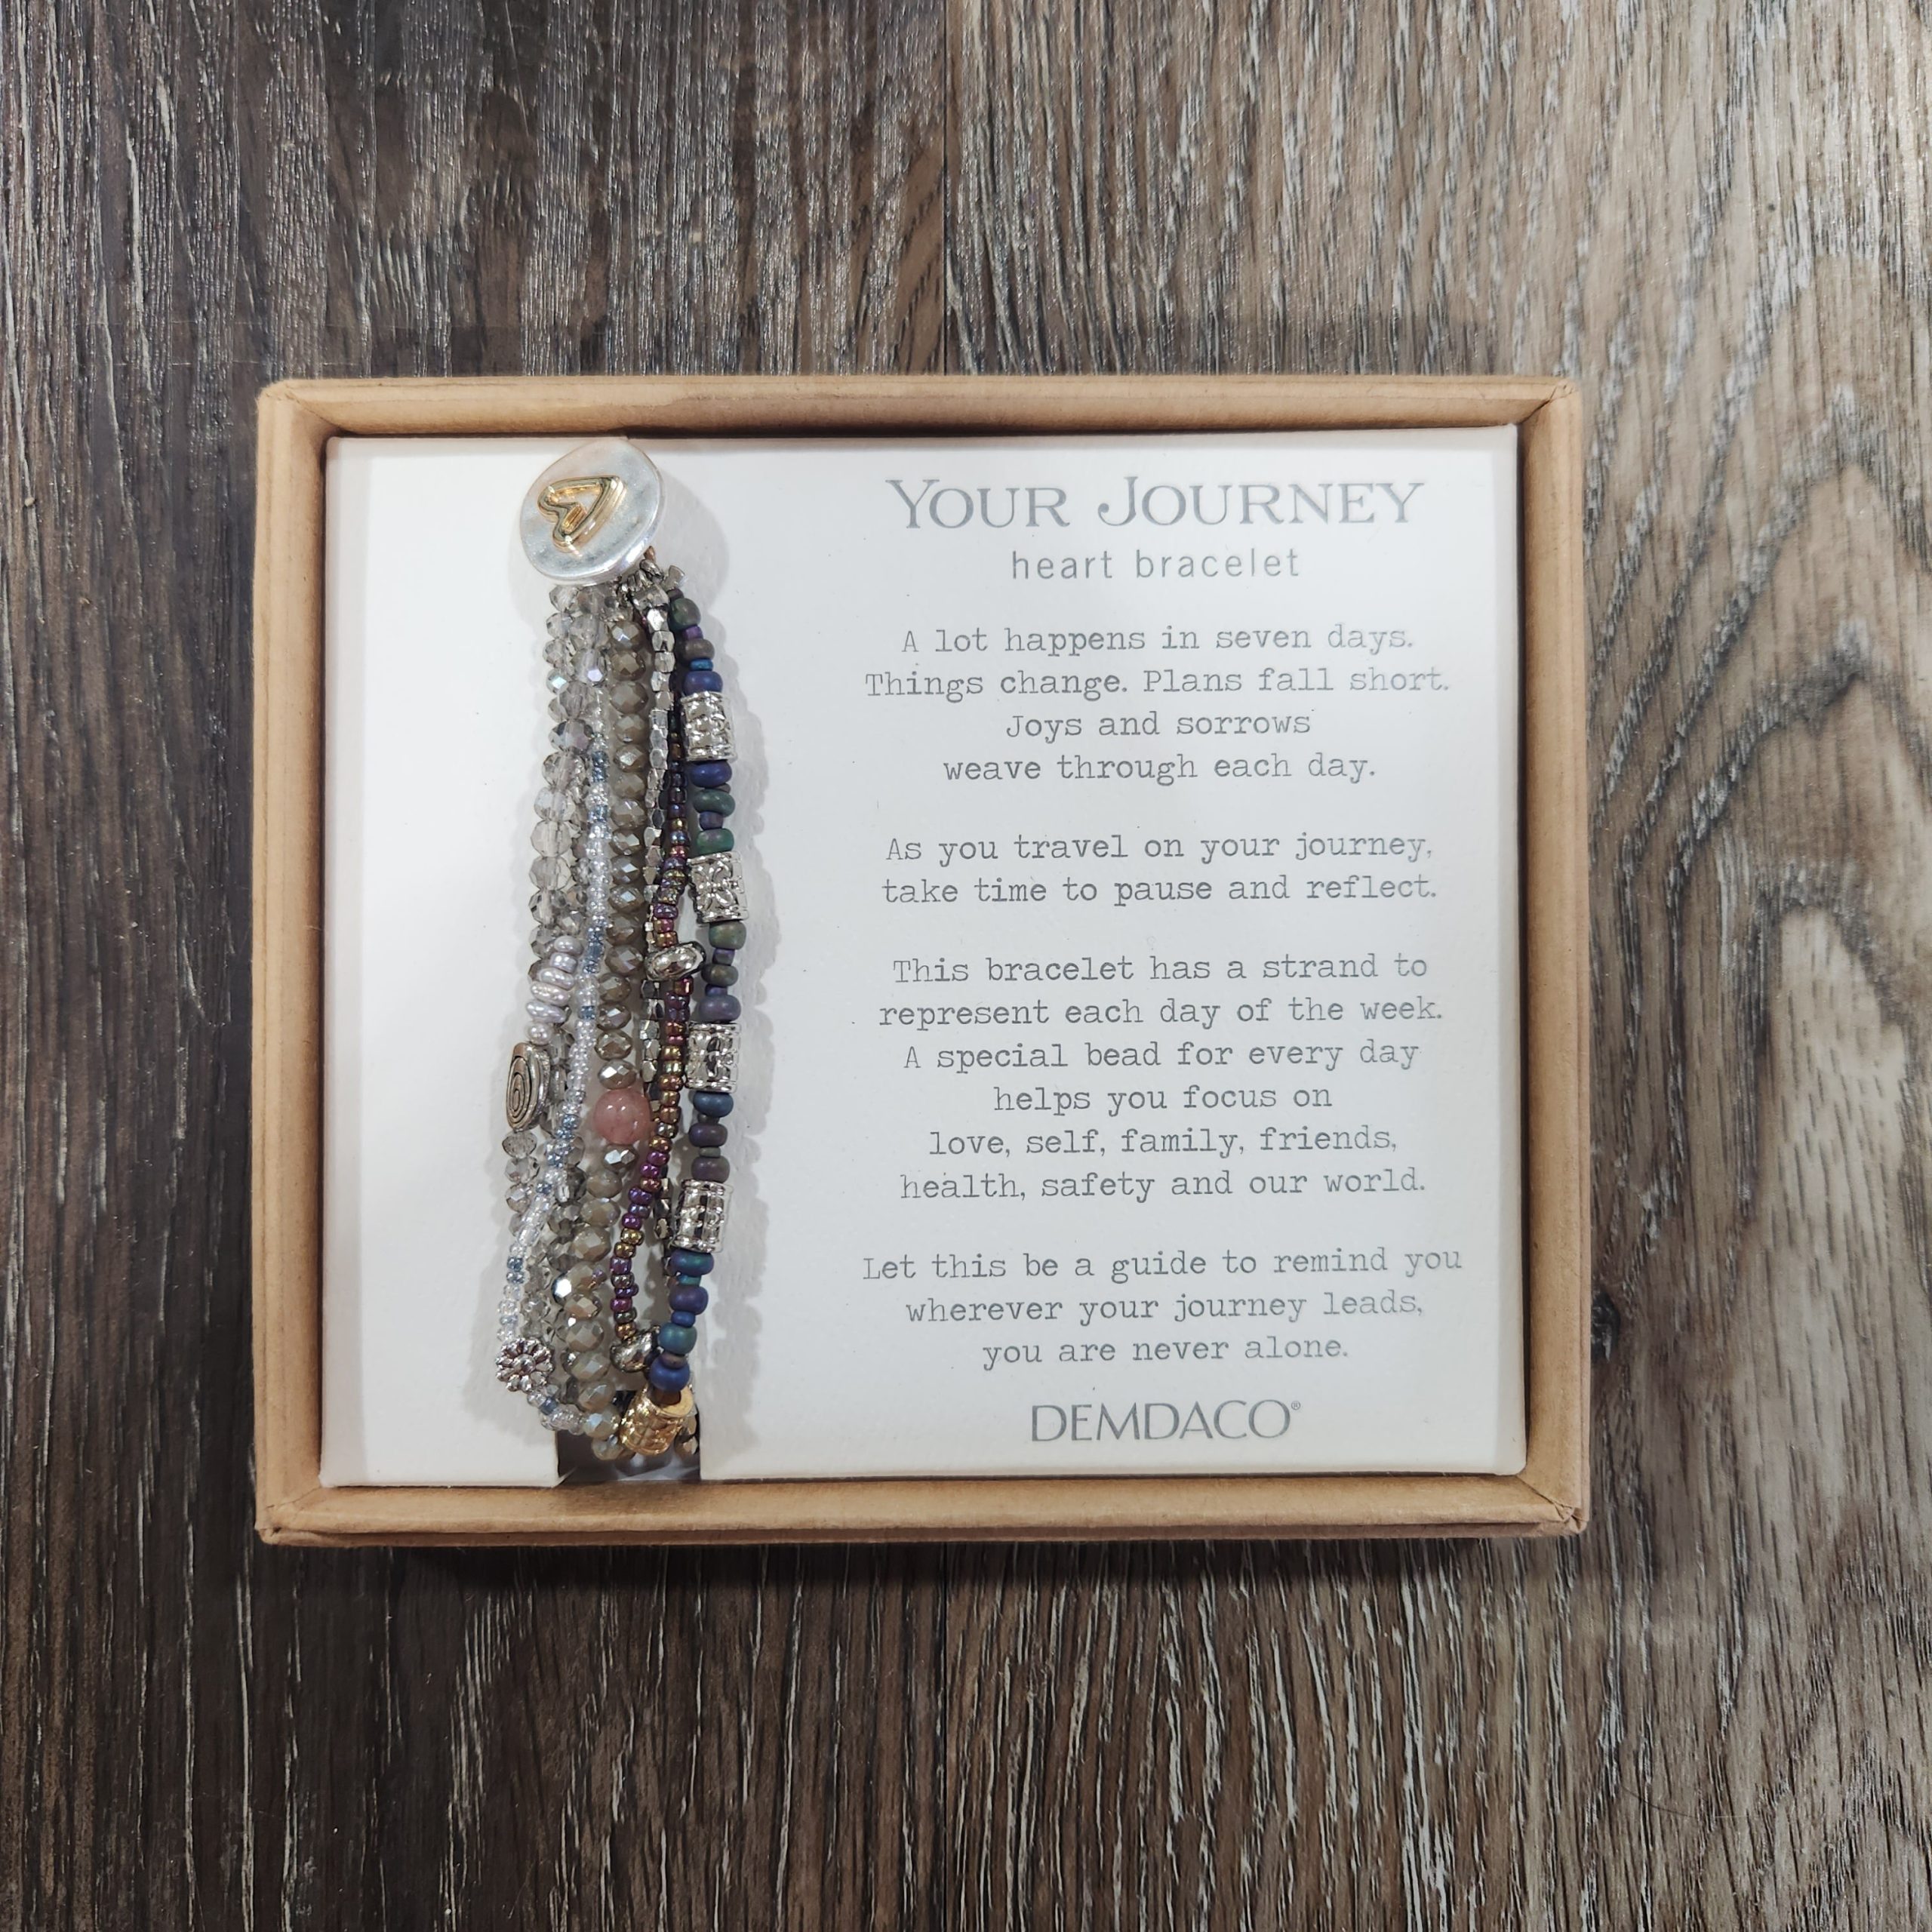 YOUR JOURNEY
heart bracelet
A lot happens in seven days.
Things change. Plans fall short.
Joys and sorrows
weave through each day.
As you travel on your journey,
take time to pause and reflect.
This bracelet has a strand to
represent each day of the week.
A special bead for every day
helps you focus on
love, self, family, friends,
health, safety and our world.
Let this be a guide to remind you
wherever your journey leads,
you are never alone.
DEMDACO®